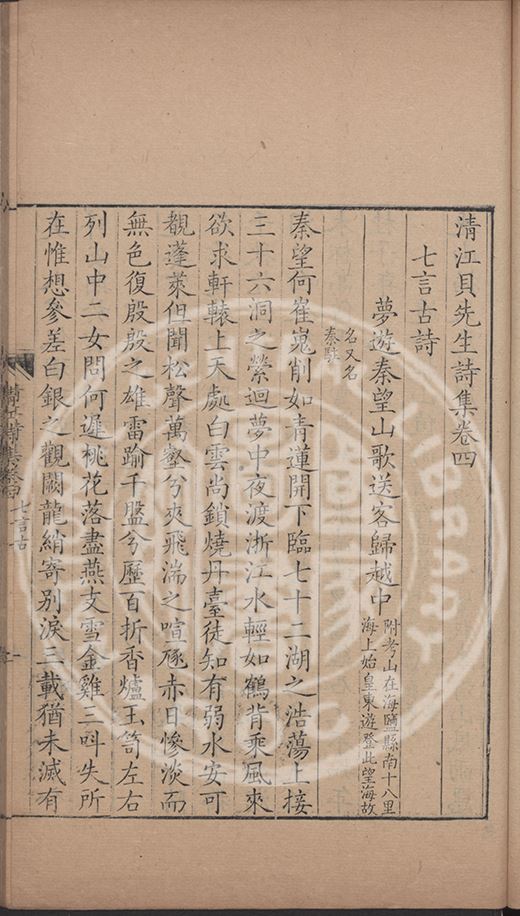 清江貝先生詩集卷四
七言古詩
夢遊秦望山歌送客歸越中附考山在海鹽縣南十八里海上始皇東遊登此望海故
名又名秦駐
秦望何崔嵬削如青蓮開下臨七十二湖之浩蕩上接
三十六洞之縈迴夢中夜渡浙江水輕如鶴背乘風來
欲求軒轅上天處白雲尚鎖燒丹臺徒知有弱水安可
覩蓬萊伯聞松聲萬壑兮夾飛湍之喧豗赤日慘淡而
無色復殷殷之雄雷踰千盤兮歷百折香爐玉笥左右
列山中二女問何遲桃花落盡燕支雪金雞三呌失所
在惟想參差白銀之觀闕龍綃寄別淚三載猶未滅有
清江詩集卷四 七言古 一